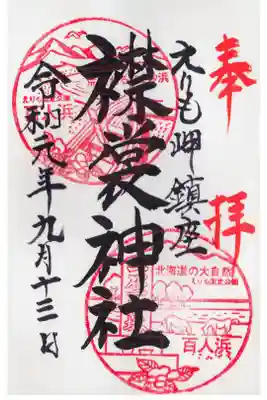 奉拝
えりも岬鎮座
襟裳神社
令和元年九月十三日
北海道の大自然
百人浜